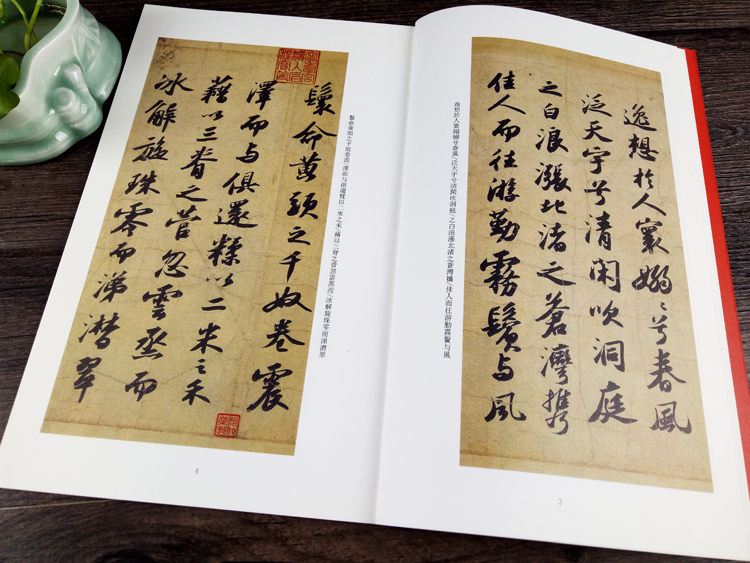 逸想於人寰嫋〻兮春風
泛天宇兮清閑吹洞庭
之白浪漲北渚之蒼灣攜
佳人而往游勤霧鬢與風
逸想於人寰嫋嫋兮春風/泛天宇兮清閑吹洞庭/之白浪漲北渚之蒼灣攜/佳人而往游勤霧鬢與風
3
鬟命黄頭之千奴卷震
澤而與俱還糅以二米之禾
藉以三脊之菅忽雲烝而
冰解旋珠零而涕潸翠
鬟命黄頭之千奴卷震/澤而與俱還糅以二米之禾/藉以三脊之菅忽雲烝而/冰解旋珠零而涕潸翠
4